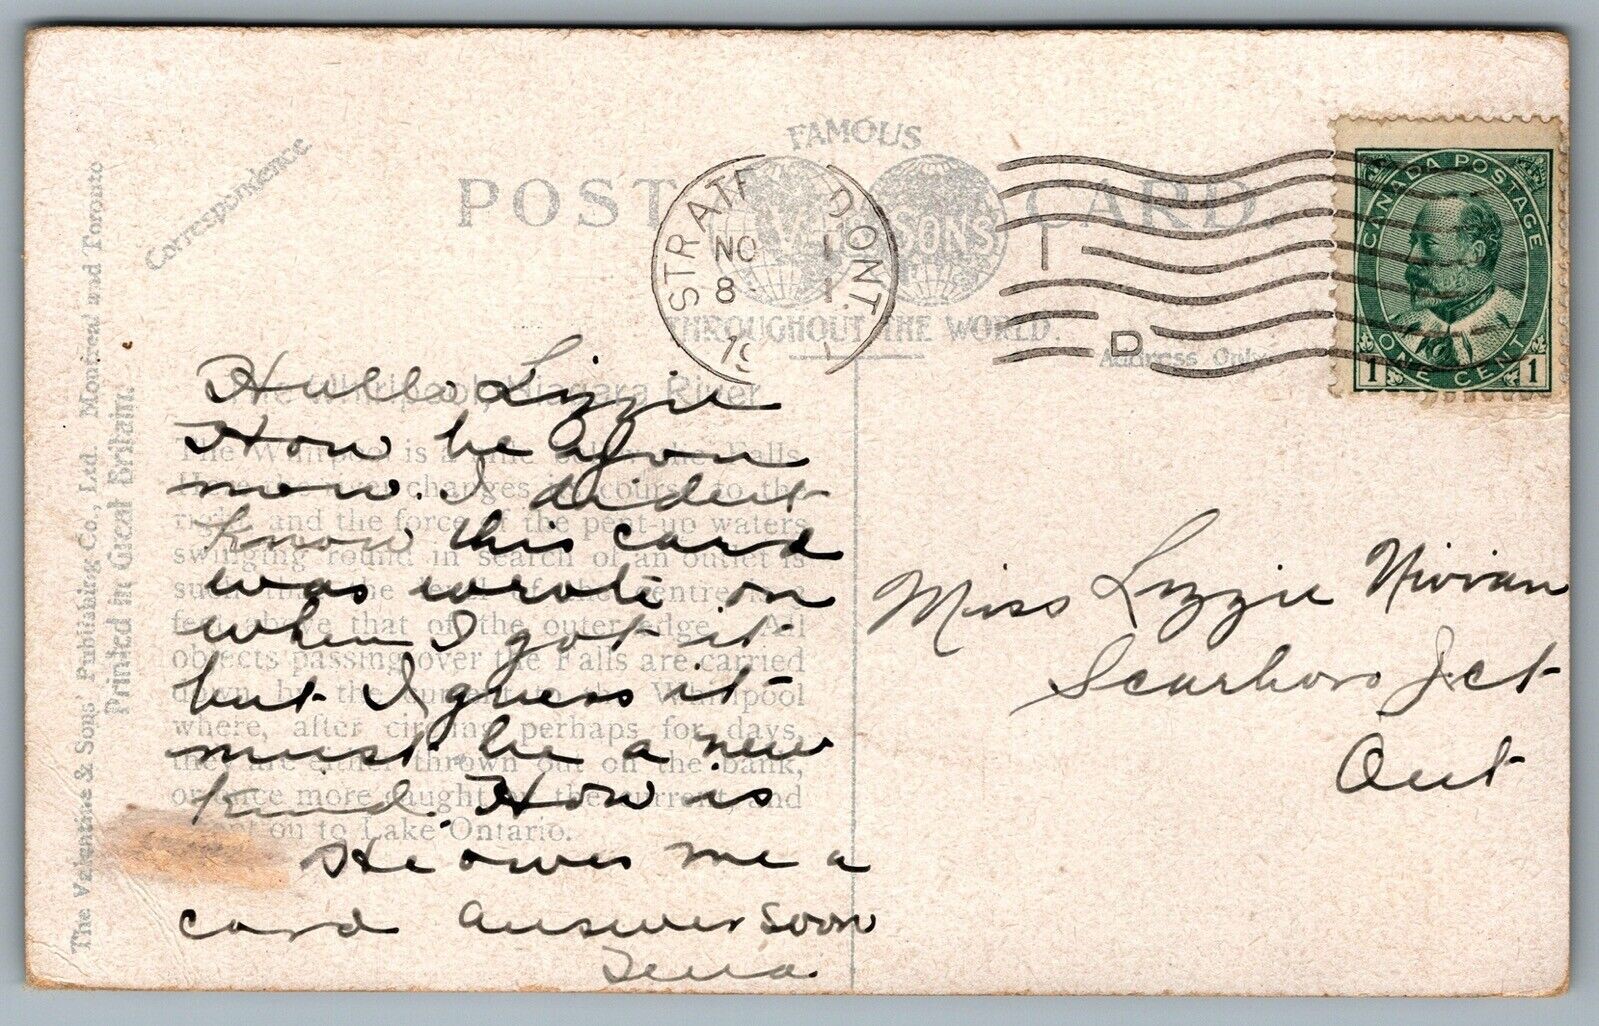 The Valentine & Sons' Publishing Co., Ltd. Montreal and Toronto
Printed in Great Britain.
Correspondence
FAMOUS
POST CARD.
SONS
THROUGHOUT THE WORLD.
Address Only
STRATF D ONT.
NO
8
1
D
CANADA POSTAGE
1 ONE CENT 1
Whirlpool, Niagara River
The Whirlpool is a the Falls.
the river changes its course to the
right, and the force of the pent-up waters
swinging round in search of an outlet is
such the level of the centre is
feet above that of the outer edge. All
objects passing over the Falls are carried
down by the current to the Whirlpool
where, after circling perhaps for days,
they are either thrown out on the bank,
or once more caught by the current, and
swept on to Lake Ontario.
Hullo Lizzie
How be you
now. I dident
know this card
was wrote on
when I got it
but I guess it
must be a new
kind. How is
He owes me a
card answer soon
Miss Lizzie Vivian
Scarboro Jct
Ont